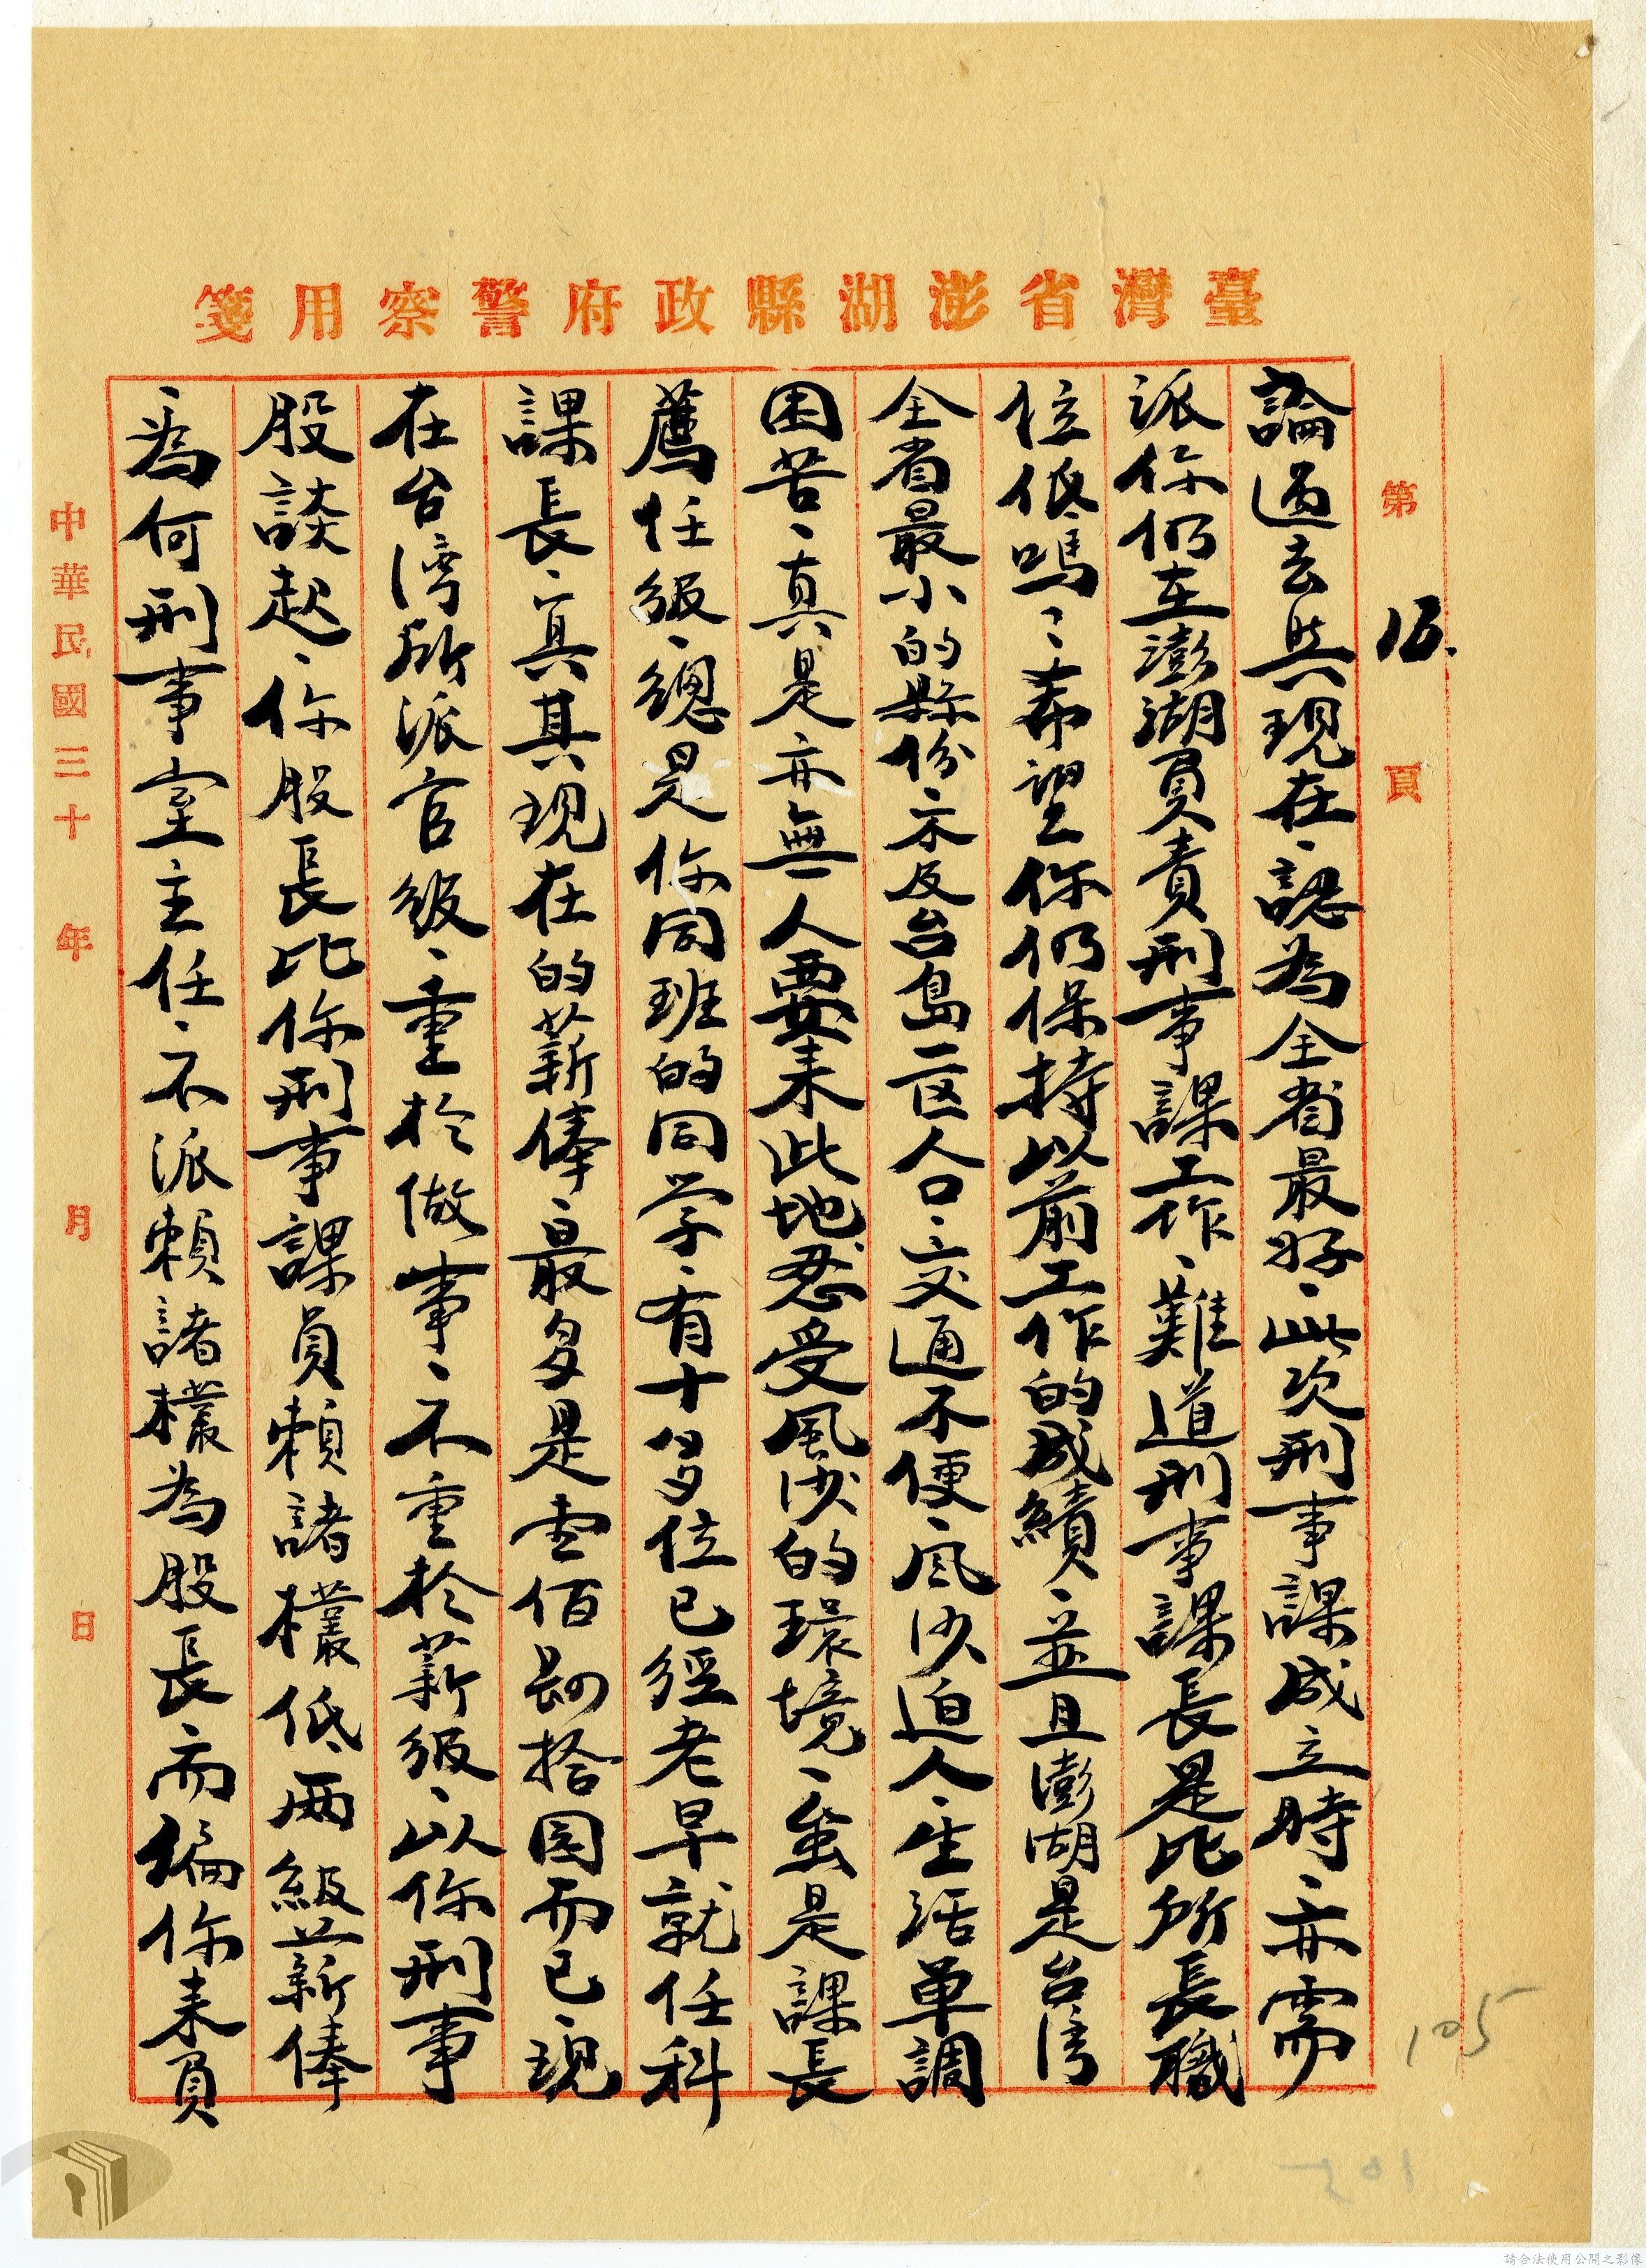 臺灣省澎湖縣政府警察用箋
第 15. 頁
論過去與現在、認為全省最好、此次刑事課成立時、亦需
派你仍在澎湖負責刑事課工作、難道刑事課長是比所長職
位低嗎、希望你仍保持以前工作的成績、並且澎湖是台湾
全省最小的縣份、不及台島一区人口、交通不便、风沙迫人、生活单調
困苦、真是亦無人要来此地忍受風沙的環境、虽是課長
薦任級、總是你同班的同学、有十多位已經老早就任科
課長、其現在的薪俸、最多是壹佰捌拾圆而已、現
在台湾所派官級、重於做事、不重於薪級、以你刑事
股談起、你股長比你刑事課員賴諸欉低两級薪俸
、為何刑事室主任、不派賴諸欉為股長而编你来負
中華民國三十 年 月 日
105
請合法使用公開之影像